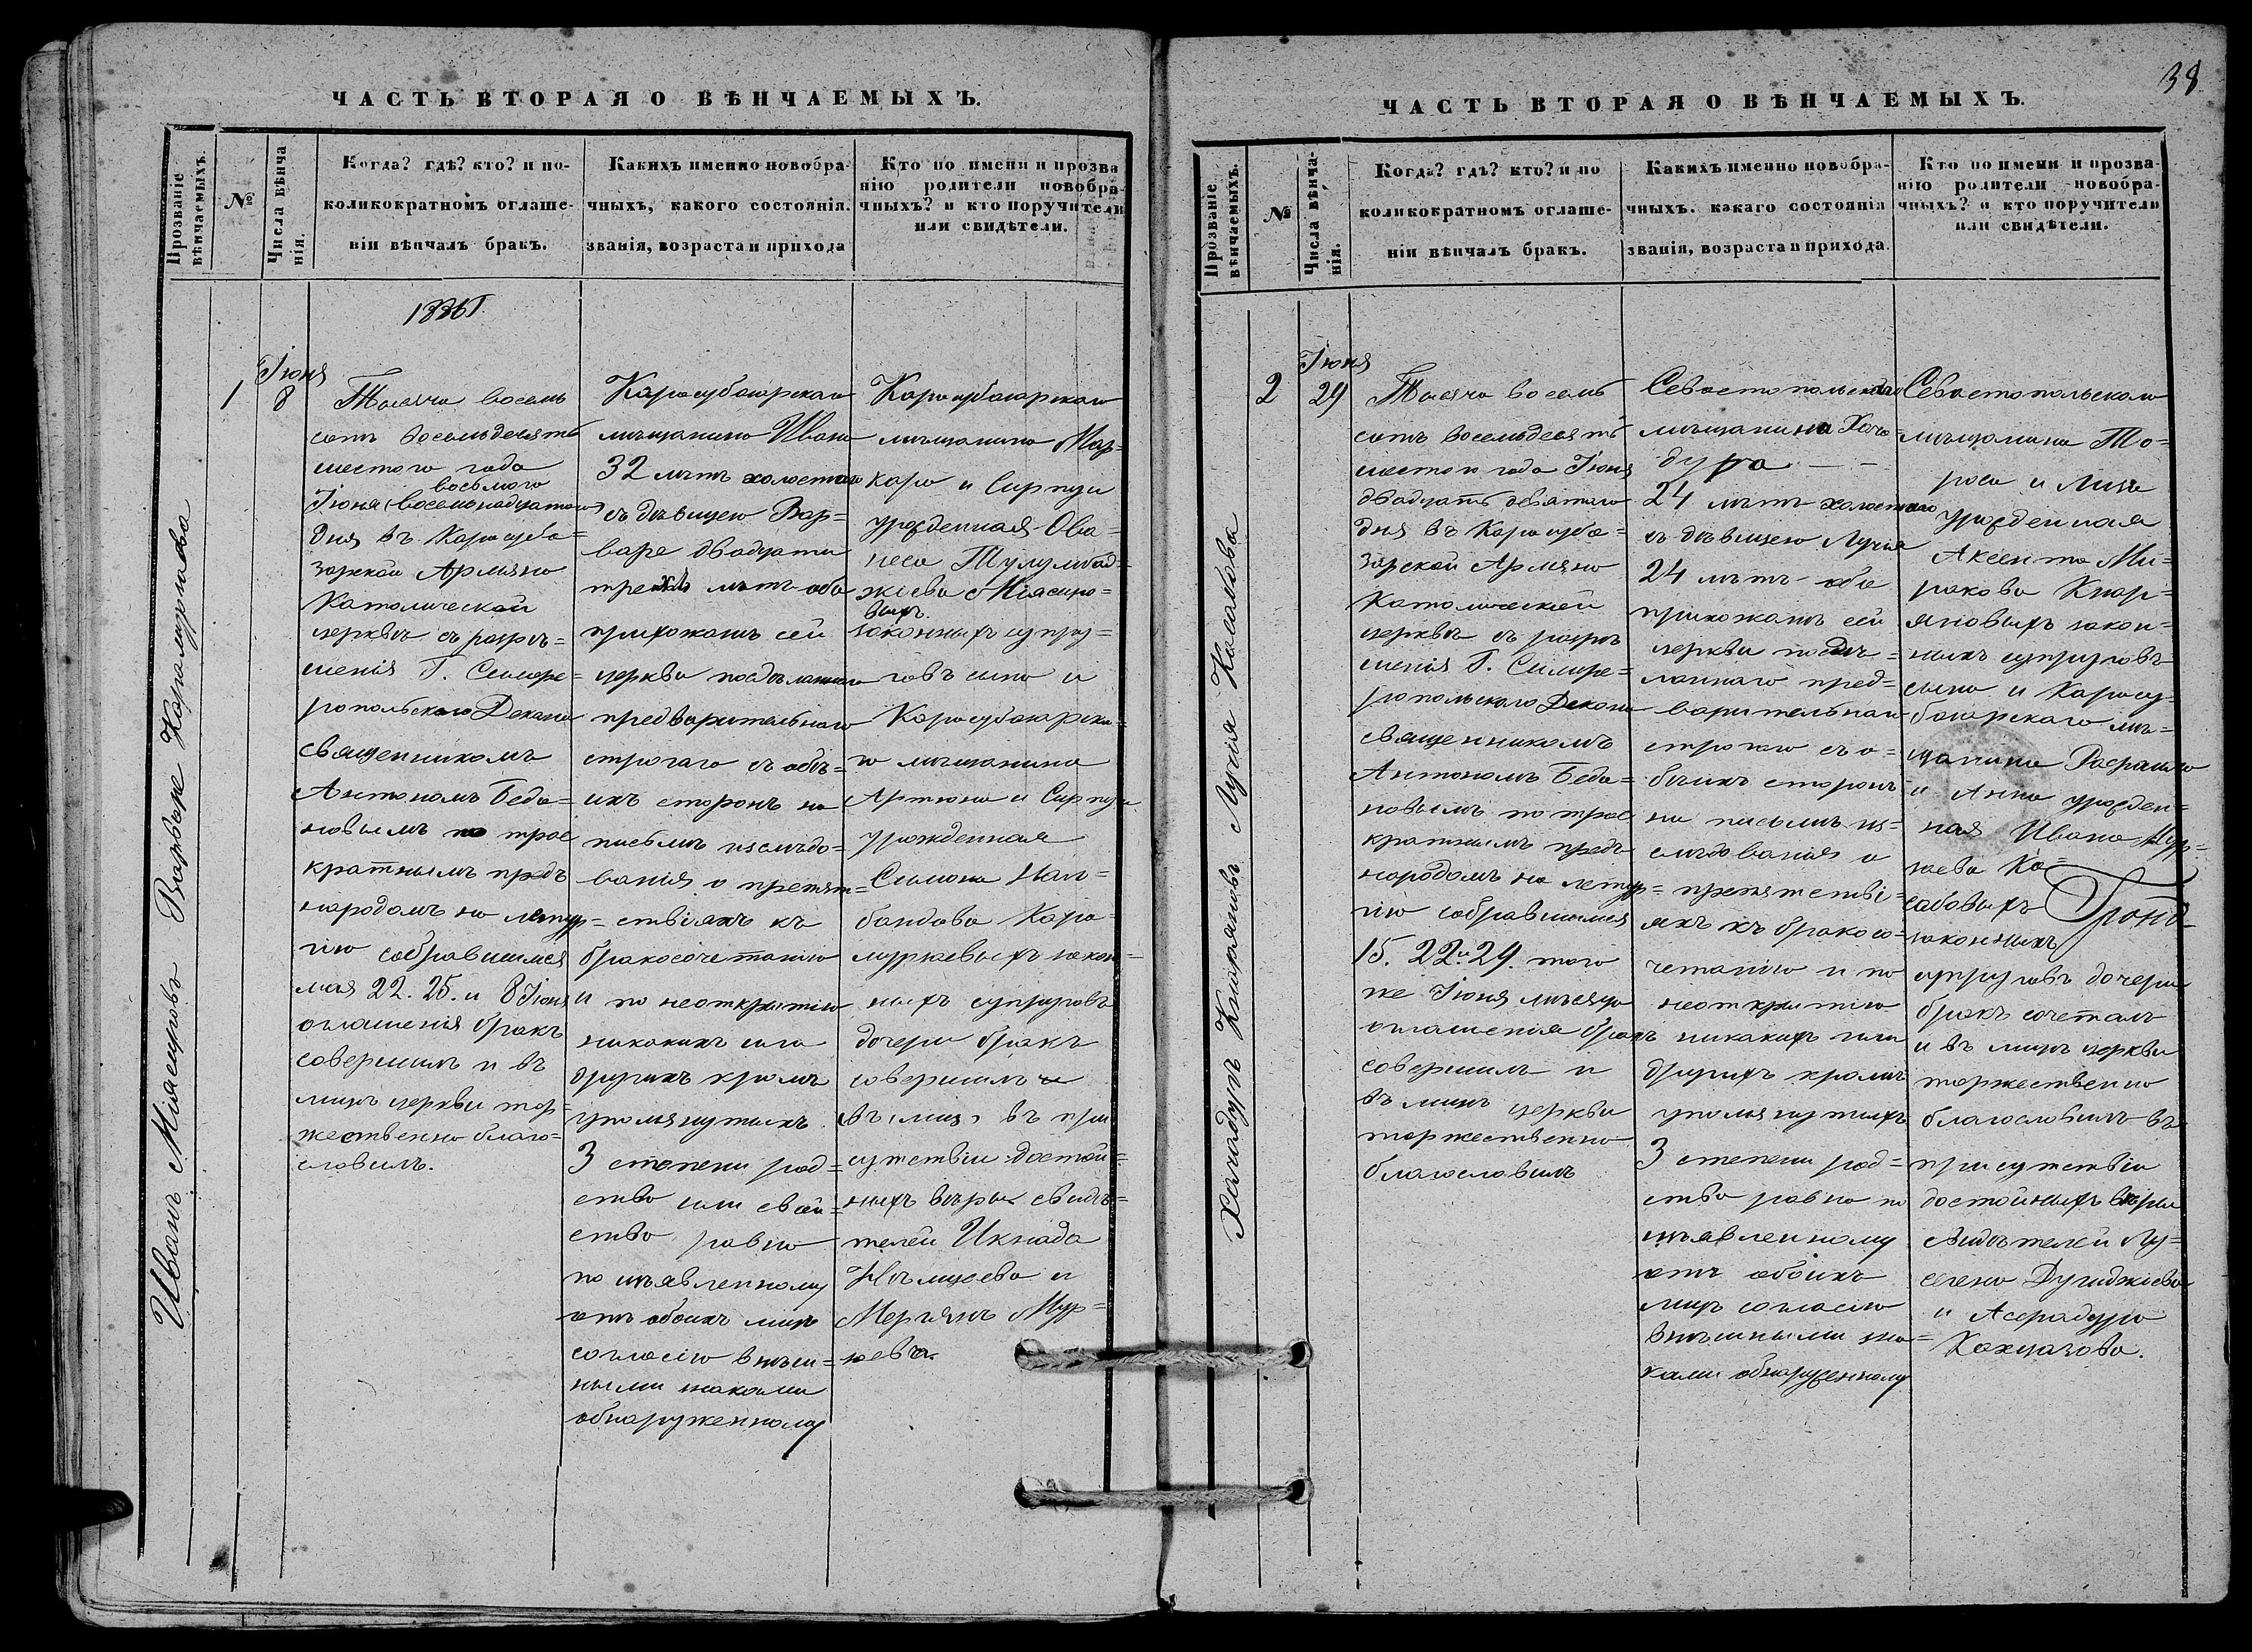 ЧАСТЬ ВТОРАЯ О ВѢНЧАЕМЫХЪ.
Прозваніе вѣнчаемыхъ.
№
Числа вѣнча
нія.
Когда? гдѣ? кто? и по-
коликократномъ оглаше-
ніи вѣнчалъ бракъ.
Какихъ именно новобра-
чныхъ, какого состоянія.
званія, возраста и прихода
Кто по имени и прозва
нію родители новобра-
чныхъ? и кто поручители
или свидѣтели.
Иванъ Міясеровъ Варваре Карамурзова
1
Іюня
8
Тысяча восемь
сотъ восемьдесятъ
шестого года
восьмого
Іюня (восемьнадцатого)
дня въ Карасуба=
зарской Армяно
Католической
церквѣ съ разрѣ=
шенія Г. Симфе=
ропольского Декана
священникомъ
Антономъ Беда=
новымъ по трое
кратнымъ предъ
народомъ на литур=
гію собравшимся
мая 22. 25. и 8 Іюня
оглашенія бракъ
совершилъ и въ
лицѣ церкви тор=
жественно благо=
словилъ.
Карасубазарскаго
мѣщанина Ивана
32 лѣтъ холостого
съ дѣвицею Вар=
варе двадцати
трехъ лѣтъ оба
прихожанъ сей
церкви послѣ
предварительнаго
строгаго съ обѣ=
ихъ сторонъ на
письмѣ изслѣдо=
ванія о препят=
ствіяхъ къ
бракосочетанію
и по неоткрытію
никакихъ или
другихъ кромѣ
упомянутыхъ
3 степени род=
ство или свой=
ство равно
по изъявленному
отъ обоихъ лицъ
согласію внѣш=
ными знаками
обнаруженному
Карасубазарскаго
мѣщанина Мар=
каро и Сирпуи
урожденная Ова=
неса Тулумбад=
жіева Міясиро=
выхъ
законныхъ супру=
говъ сына и
Карасубазарска=
го мѣщанина
Артюна и Сирпуи
урожденная
Симона Нал=
бандова Кара=
мурзовыхъ закон=
ныхъ супруговъ
дочери бракъ
совершилъ
въ лицѣ въ при
сутствіи достой=
ныхъ вѣры свидѣ=
телей Икнада
и
Мур=
зевча.
38
ЧАСТЬ ВТОРАЯ О ВѢНЧАЕМЫХЪ.
Прозваніе вѣнчаемыхъ.
№
Числа вѣнча-
нія.
Когда? гдѣ? кто? и по
коликократномъ оглаше-
ніи вѣнчалъ бракъ.
Какихъ именно новобра-
чныхъ. какаго состоянія
званія, возраста и прихода.
Кто по имени и прозва-
нію родители новобра-
чныхъ? и кто поручители
или свидѣтели.
Хачадуръ Кнаряновъ Лучія Касабова
2
Іюня
29
Тысяча восемь
сотъ восемьдесятъ
шестого года Іюня
двадцать девятаго
дня въ Карасуба=
зарской Армяно
Католической
церквѣ съ разрѣ
шенія Г. Симфе=
ропольскаго Декана
священникомъ
Антономъ Беда=
новымъ по трое
кратнымъ предъ
народомъ на литур=
гію собравшимся
15. 22. и 29. того
же Іюня мѣсяца
оглашенія бракъ
совершилъ и
въ лицѣ церкви
торжественно
благословилъ
Севастопольскаго
мѣщанина Хача=
дура
24 лѣтъ холостого
съ дѣвицею Лучія
24 лѣтъ оба
прихожанъ сей
церкви по сдѣ=
ланнаго пред=
варительнаго
строгаго съ о=
бѣихъ сторонъ
на письмѣ из=
слѣдованія о
препятстві=
яхъ къ бракосо=
четанію и по
неоткрытію
никакихъ или
другихъ кромѣ
упомянутыхъ
3 степени род=
ства равно по
изъявленному
отъ обоихъ
лицъ согласію
внѣшными зна=
ками обнаруженному
Севастопольскаго
мѣщанина То=
роса и Лизы
урожденная
Аксента Ми=
ракова Кнар=
яновыхъ закон=
ныхъ супруговъ
сына и Карасу=
базарскаго мѣ=
щанина
и Анна урожден=
ная Ивана Мур=
зева Ка=
сабовыхъ
законныхъ
супруговъ дочери
бракъ сочеталъ
и въ лицѣ церкви
торжественно
благословилъ въ
присутствіи
достойныхъ вѣры
свидѣтелей Лу=
и